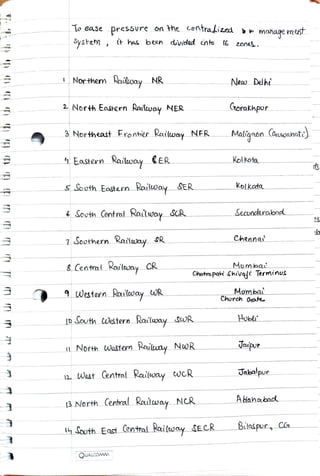 To ease pressure on the centralized management
System, it has been divided into 16 zones.
1 Northern Railway NR New Delhi
2. North Eastern Railway NER Gorakhpur
3 Northeast Frontier Railway NFR Maligaon (Guwahati)
4 Eastern Railway ER Kolkata
5 South Eastern Railway SER Kolkata
6 South Central Railway SCR Secunderabad
7 Southern Railway SR Chennai
8. Central Railway CR Mumbai
Chatrapati Shivaji Terminus
9 Western Railway WR Mumbai
Church Gate
10 South Western Railway SWR Hubli
11. North Western Railway NWR Jaipur
12. West Central Railway WCR Jabalpur
13 North Central Railway NCR Allahabad
14 South East Central Railway SECR Bilaspur, CG
QUALCOMM